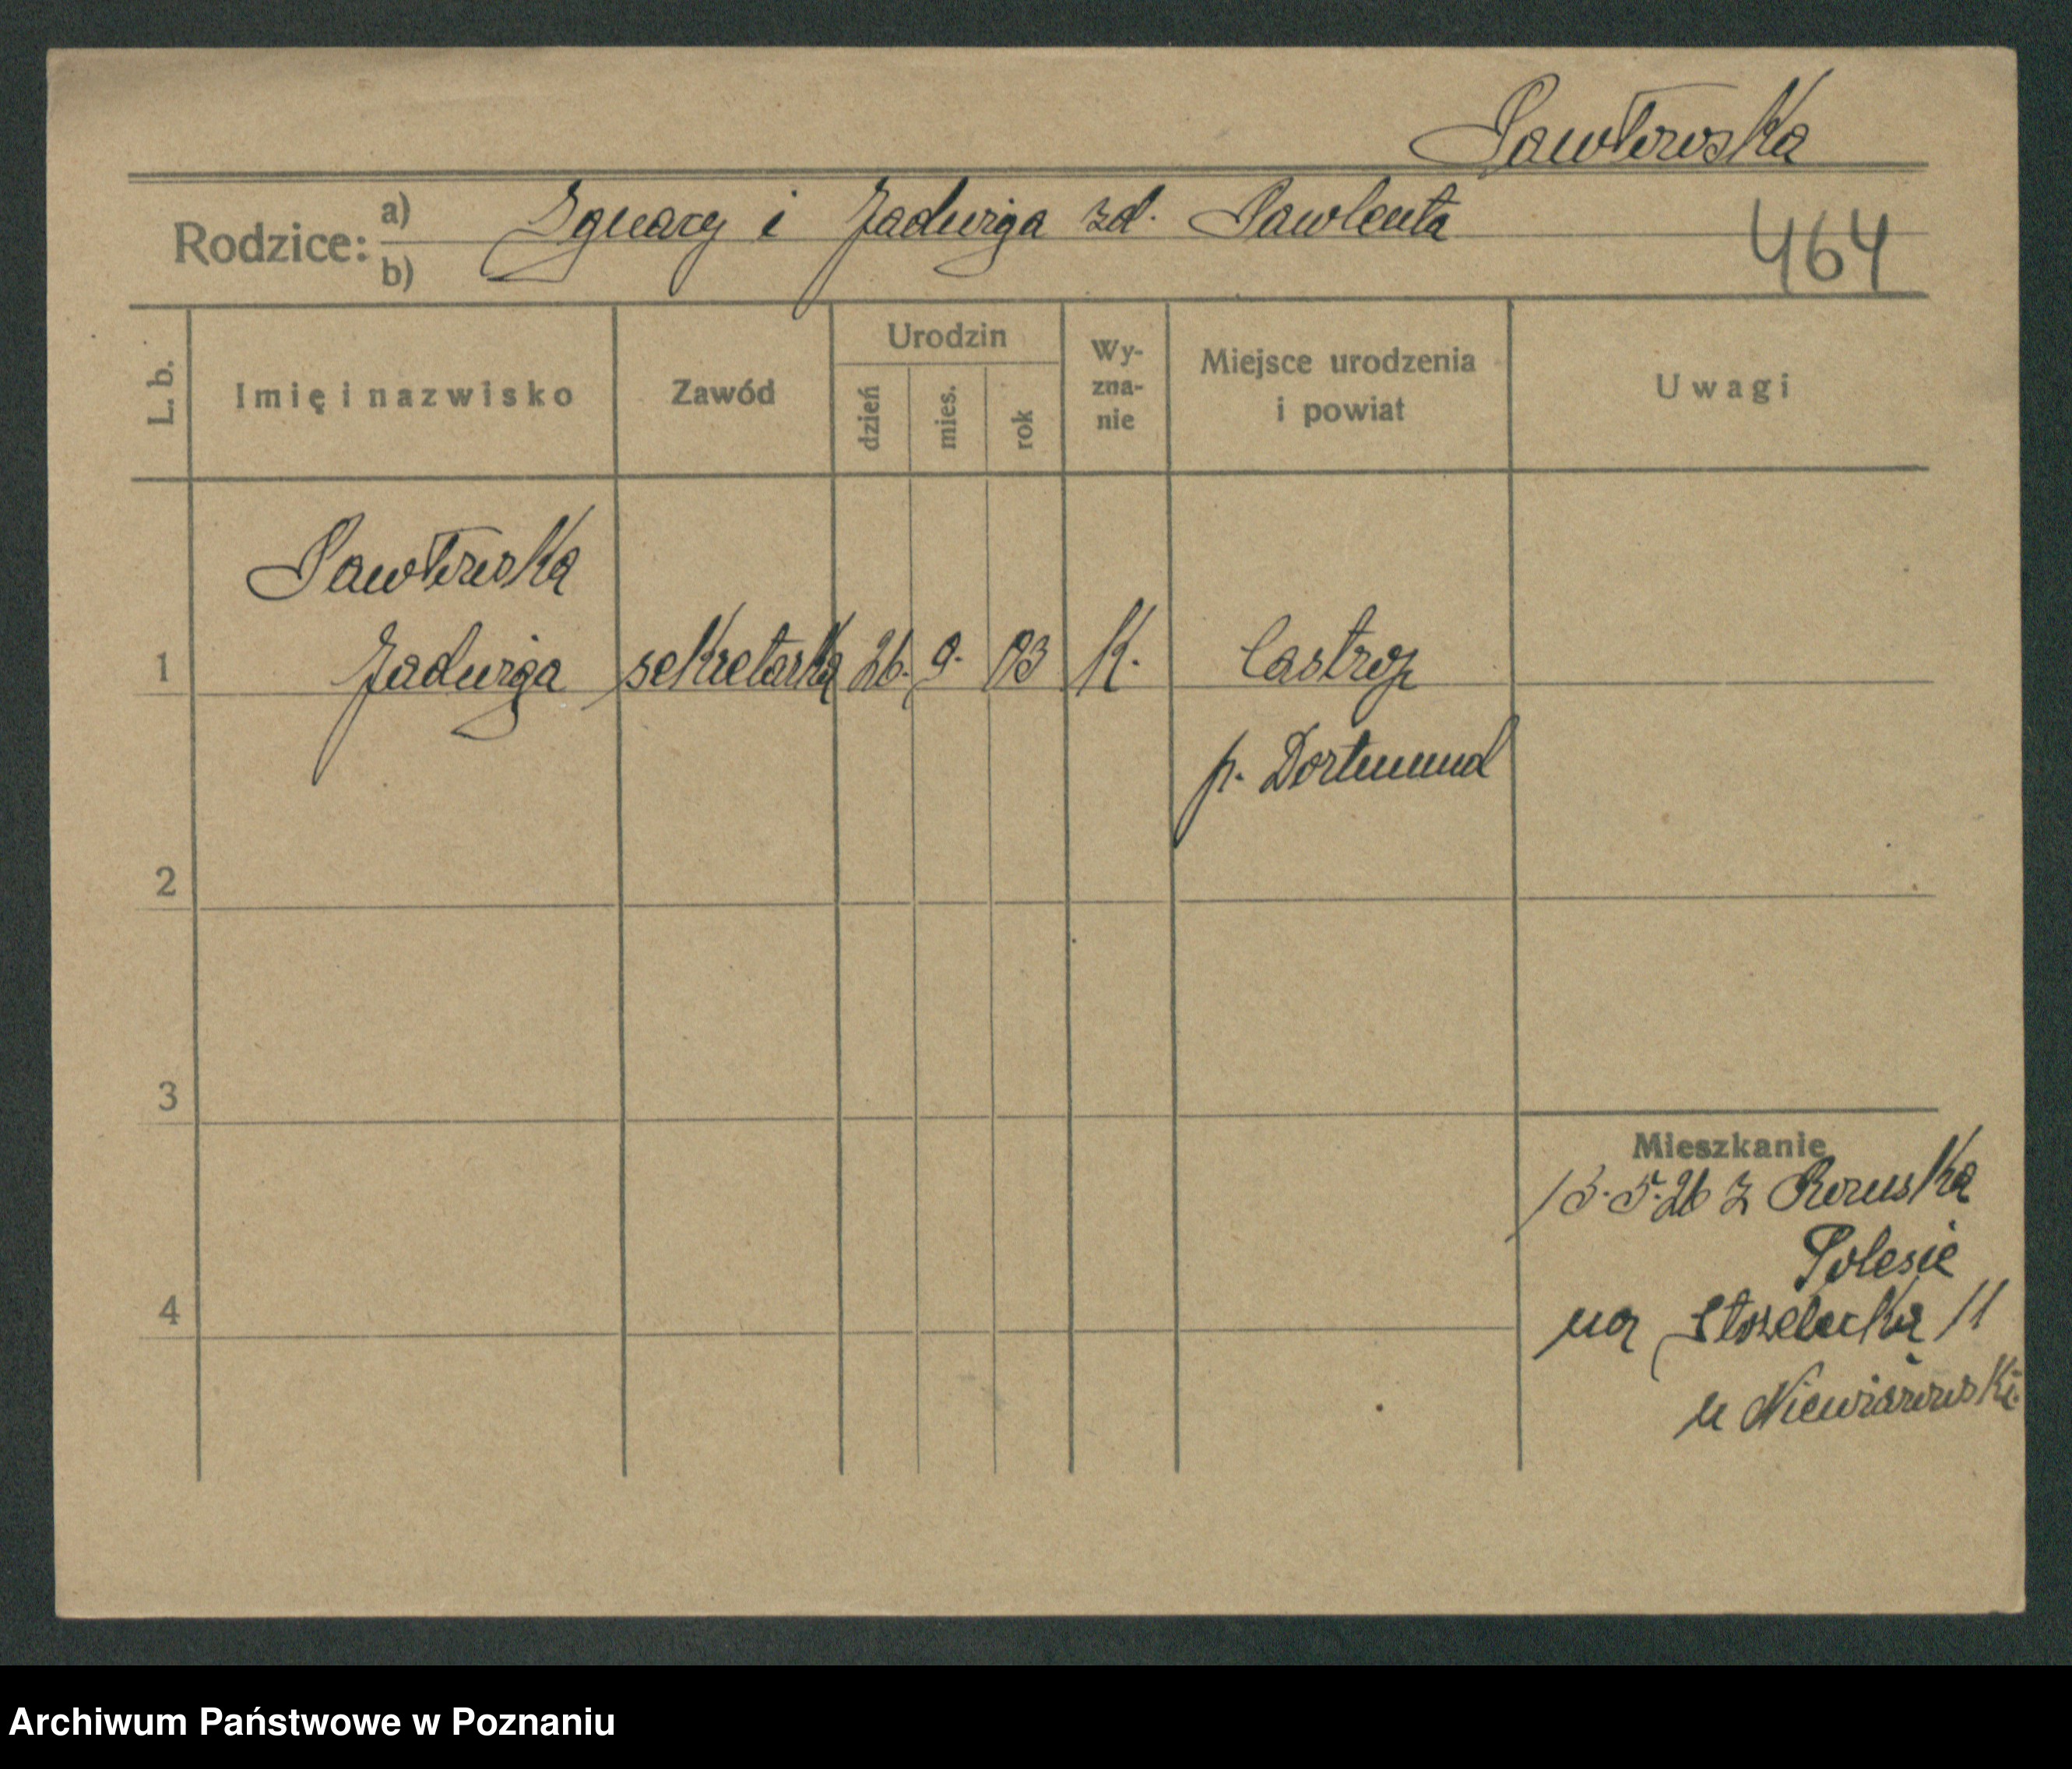 Pawłowska
Rodzice: a) Ignacy i Jadwiga zd. Pawlenta
b)
464
L. b.
Imię i nazwisko
Zawód
Urodzin
dzień
mies.
rok
Wy-
zna-
nie
Miejsce urodzenia
i powiat
Uwagi
Pawłowska
1 Jadwiga sekretarka 26. 9. 03 K. Castrop
p. Dortmund
2
3
4
Mieszkanie
13.5.26 z
Polesie
na Strzelecka 11
u Niewiarowski.
Archiwum Państwowe w Poznaniu